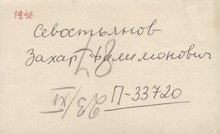 1246
Севостьянов
Захар Филимонович
П-33720